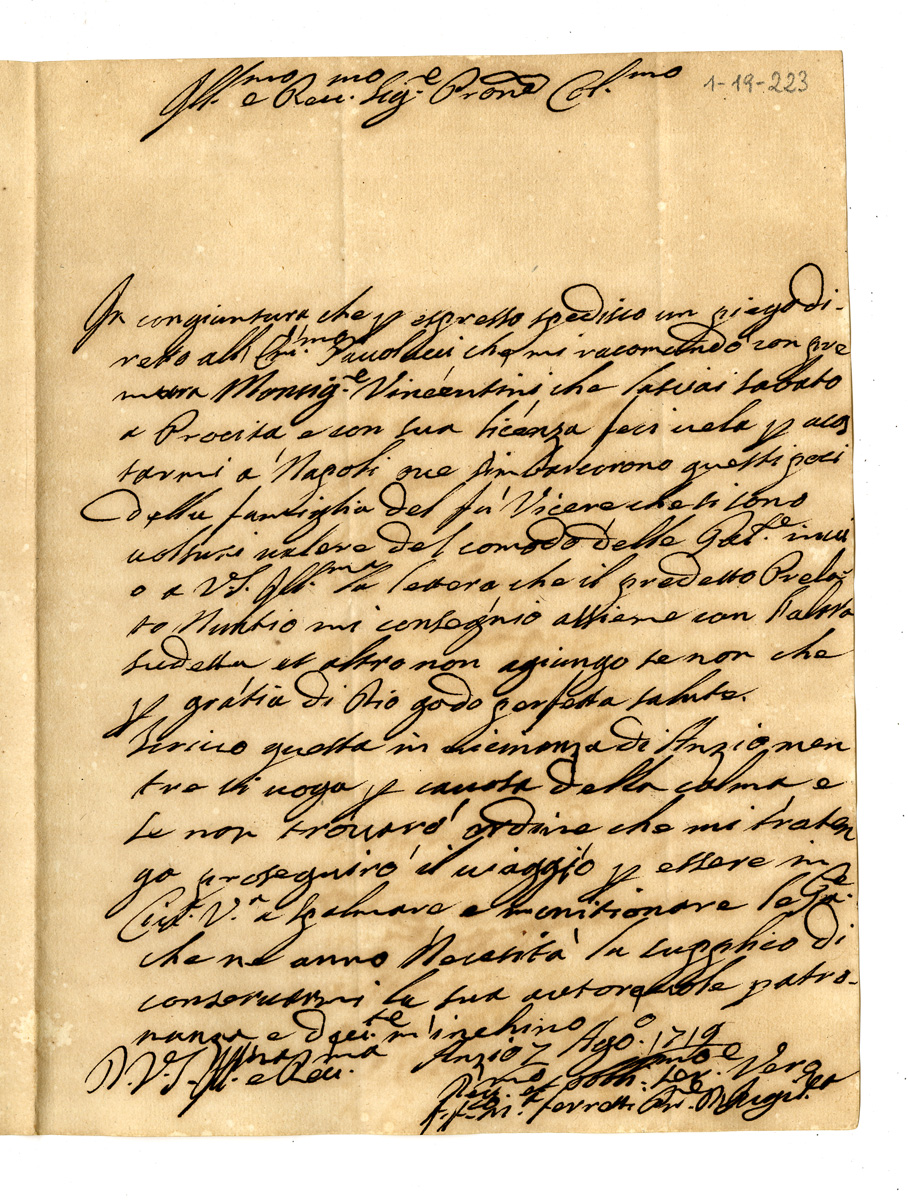 Ill.mo e Reu.mo Sig.e Prone Col.mo
1-19-223
In congiuntura che p espresso spedisco un piego di-
retto all Em.mo Pauolucci che mi racomandò con pre
mura Monsig.e Vincentini che lasciai sabato
a Procita e con sua licenza feci uela p acos
tarmi a Napoli oue s'imbarcorono questi poci
della famiglia del fù Vicere che si sono
uolsuti ualere del comodo delle Gal.e inui
o a V.S. Ill.ma la lettera che il predetto Prela
to Nuntio mi consegniò assieme con l'altra
sudetta et altro non agiungo se non che
p gratia di Dio godo perfetta salute.
Scriuo questa in uicinanza di Anzio men
tre si uoga p causa della calma e
se non trouarò ordine che mi traten
go proseguirò il uiaggio p essere in
Ciu.a V.a a spalmare e munitionare le Ga.e
che ne anno Necesità la supplico di
conseruarmi la sua autoreuole patro-
nanza e deu.te m'inchino
Anzio 7 Ago.o 1719
D. V.S. Ill.ma e Reu.ma
Deu.mo et Obb. Ser.e Vero
Ferretti